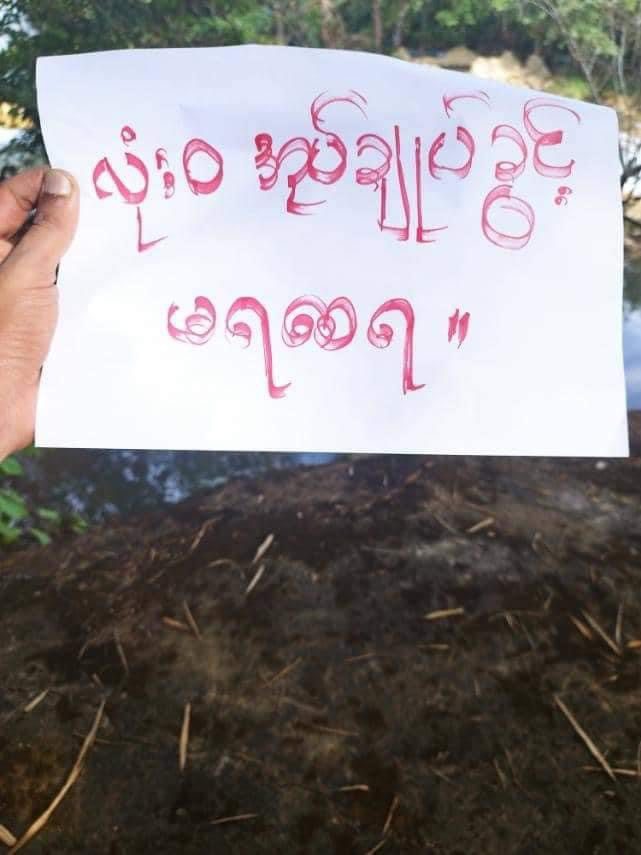 လုံးဝ အုပ်ချုပ်ခွင့်
မရစေရ။